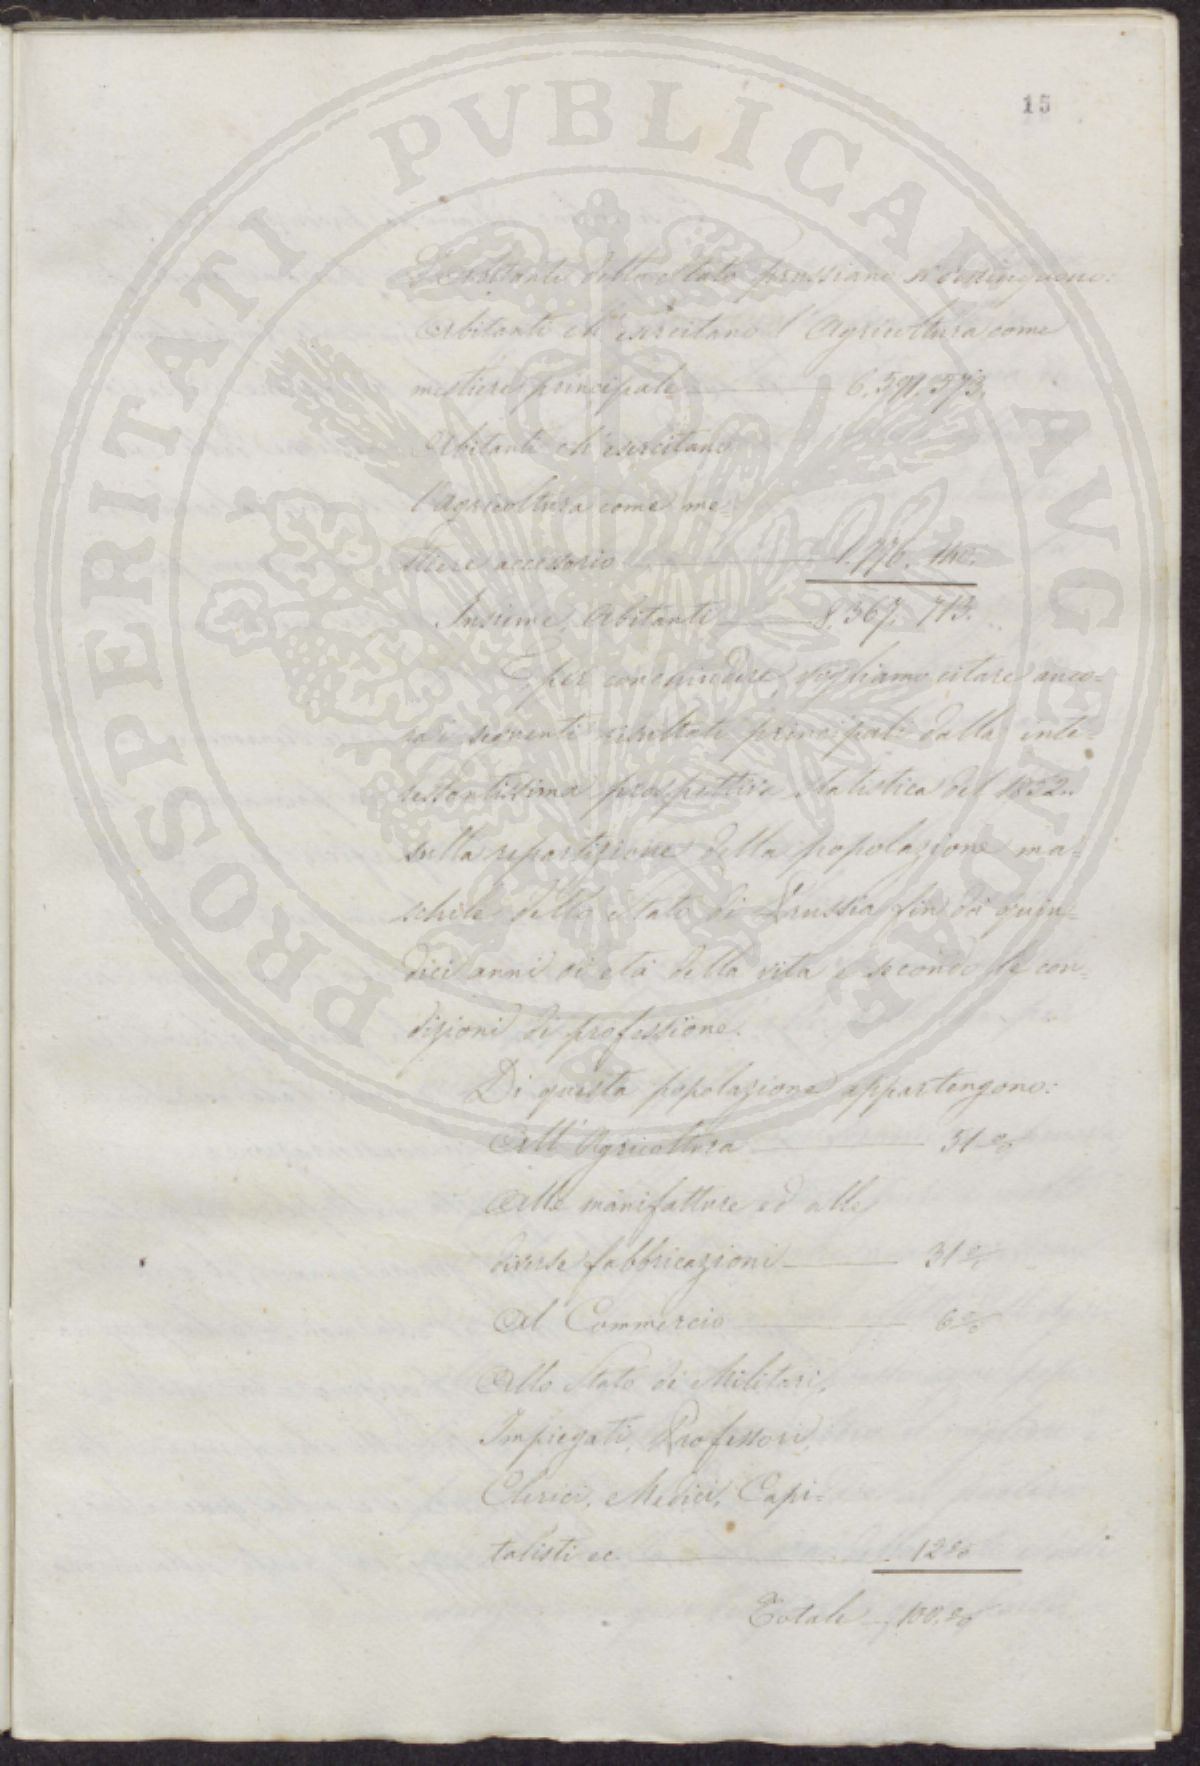 15
PROSPERITATI PVBLICAE AVGENDAE
dello Stato prussiano si distinguono:
Abitanti ch'esercitano l'Agricoltura come
mestiere principale — 6.591.573.
Abitanti ch'esercitano
l'Agricoltura come me=
stiere accessorio — 1.776.140.
Insieme Abitanti — 8.367.713.
E per conchiudere, vogliamo citare anco=
ra i seguenti risultati principali dalla inte=
ressantissima prospettiva statistica del 1852.
sulla repartizione della popolazione ma=
schile dello Stato di Prussia fin da quin=
dici anni di età della vita e secondo le con=
dizioni di professione.
Di questa popolazione appartengono:
All'Agricoltura — 51%
Alle manifatture ed alle
diverse fabbricazioni — 31%
Al Commercio — 6%
Allo Stato di Militari,
Impiegati, Professori,
Clerici, Medici, Capi=
talisti ec — 12%
Totale — 100.%